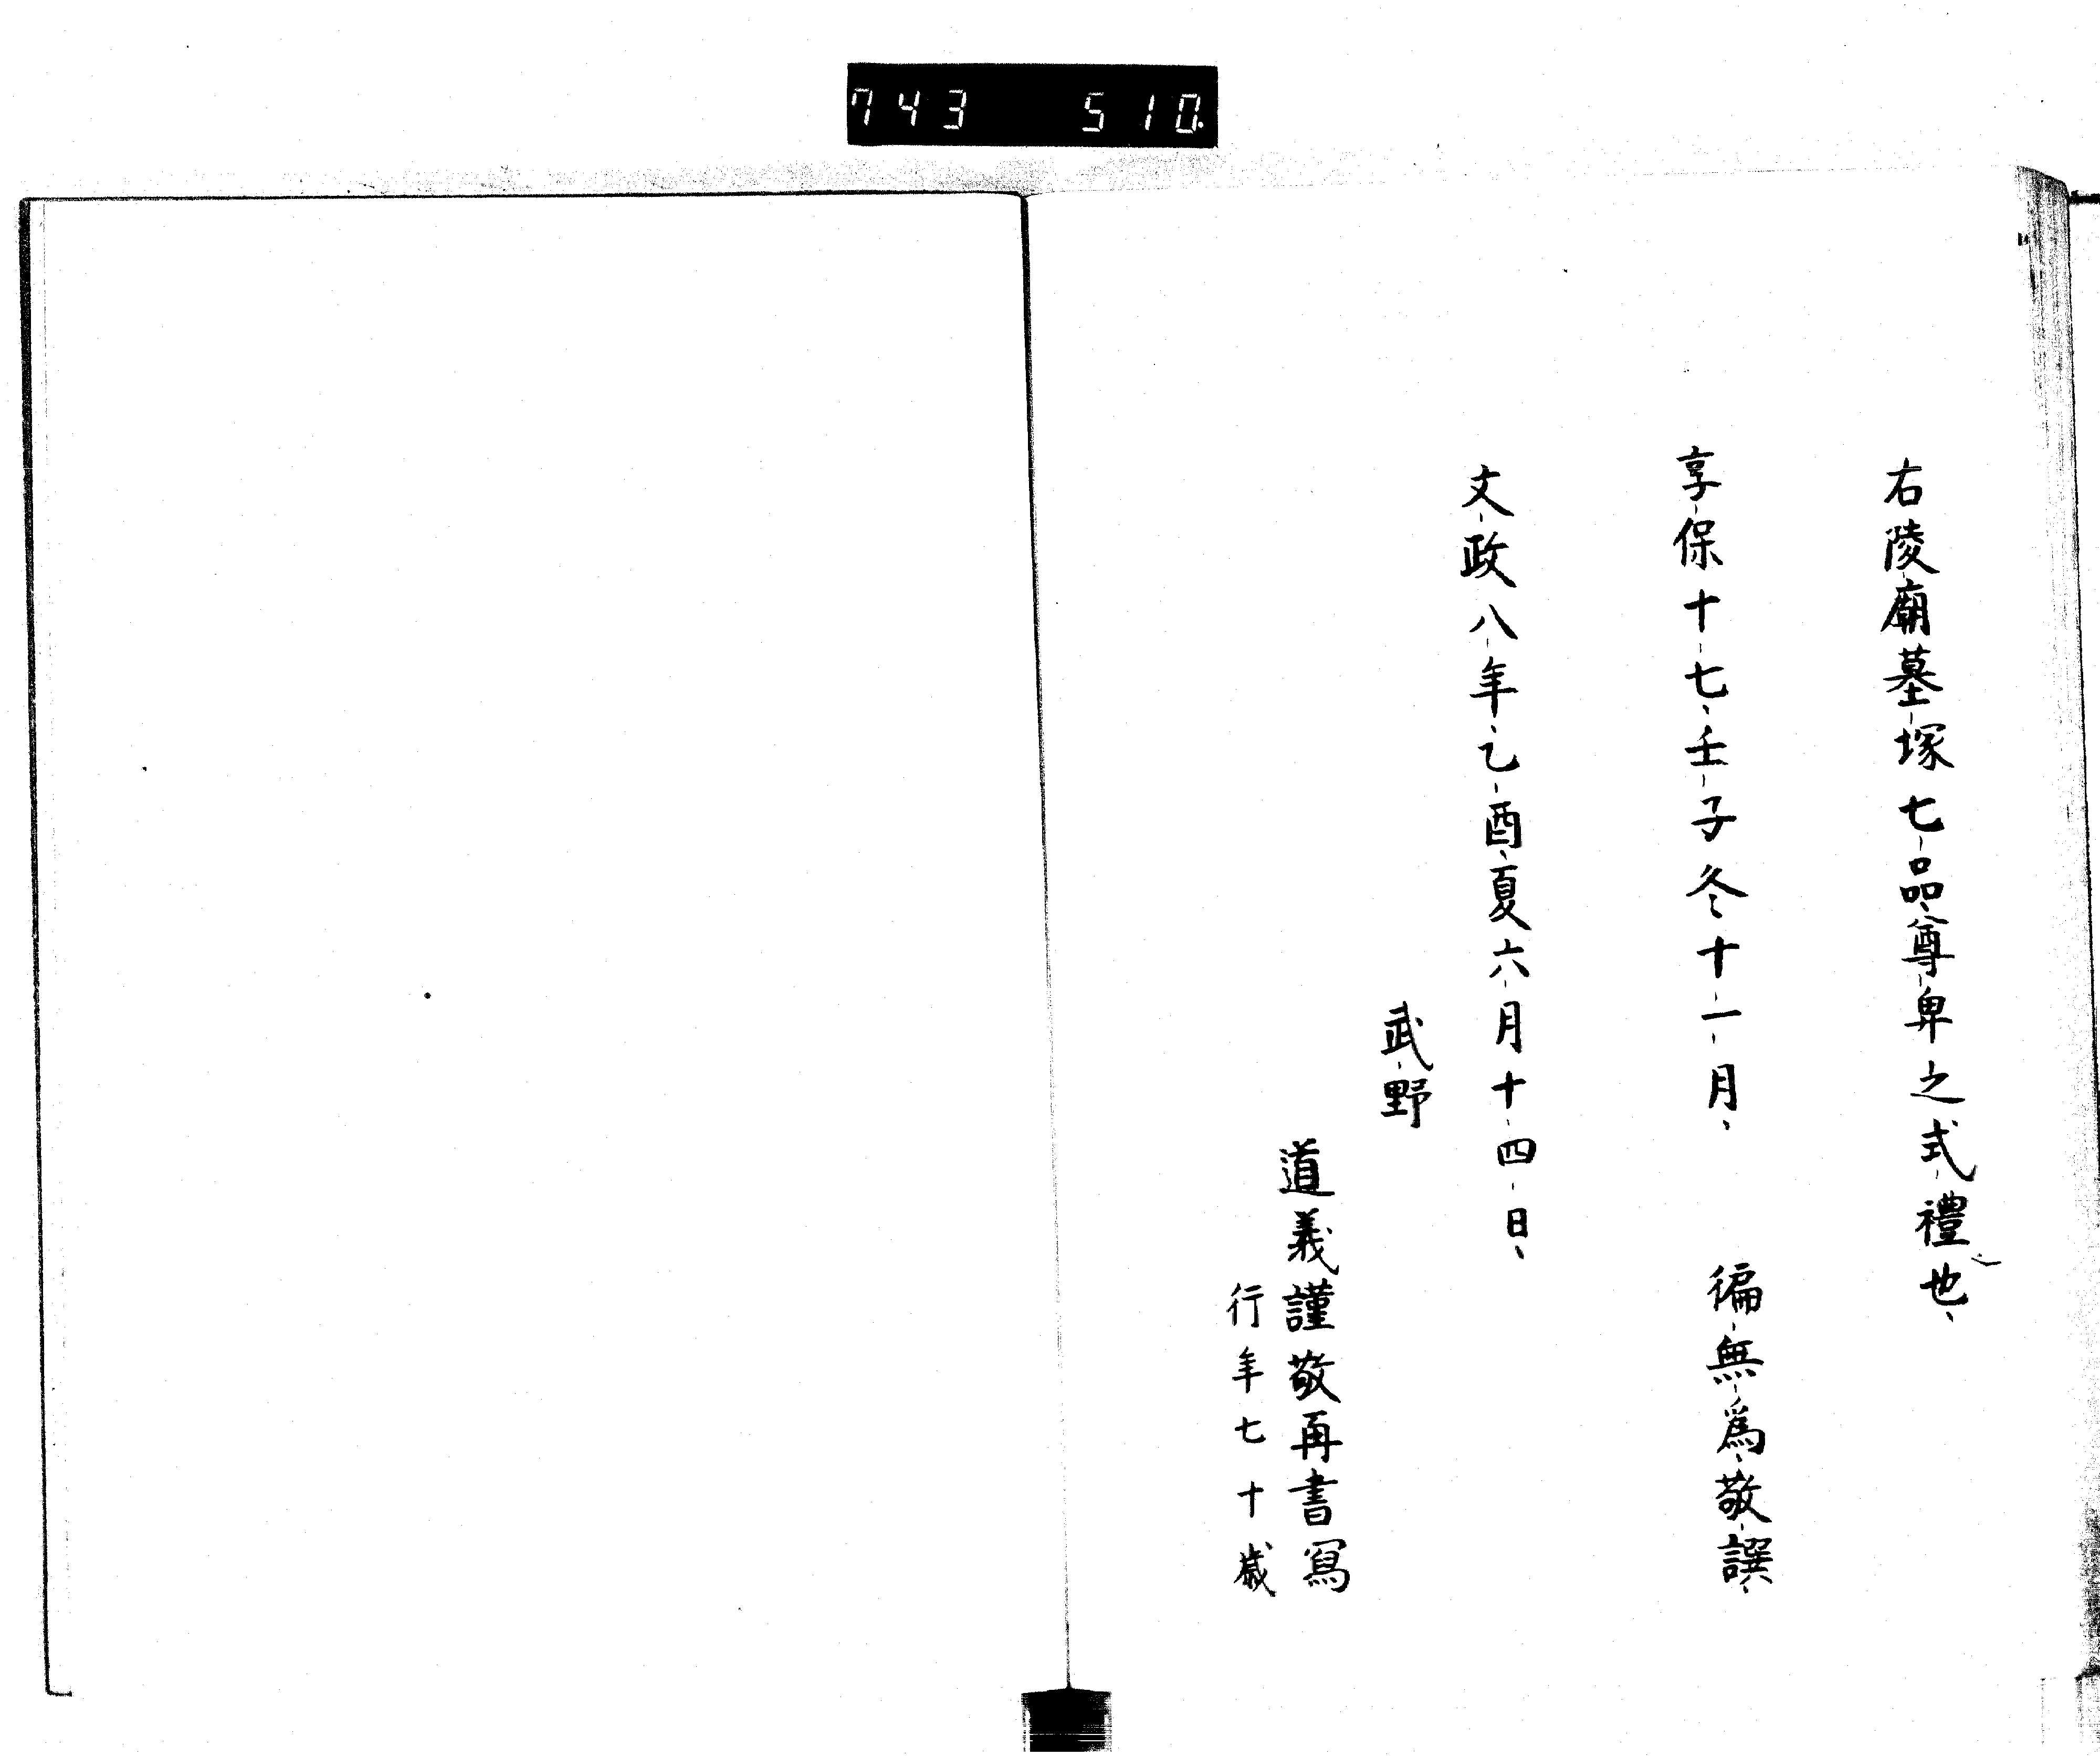 743 510
右陵廟墓塚七品尊卑之式禮也、
享保十七、壬子冬十一月、 徧無爲敬譔
文政八年乙酉夏六月十四日、
武野
道義謹敬再書寫
行年七十歳